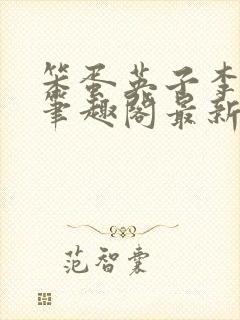 笨蛋英子李
笔趣阁最新
范智囊